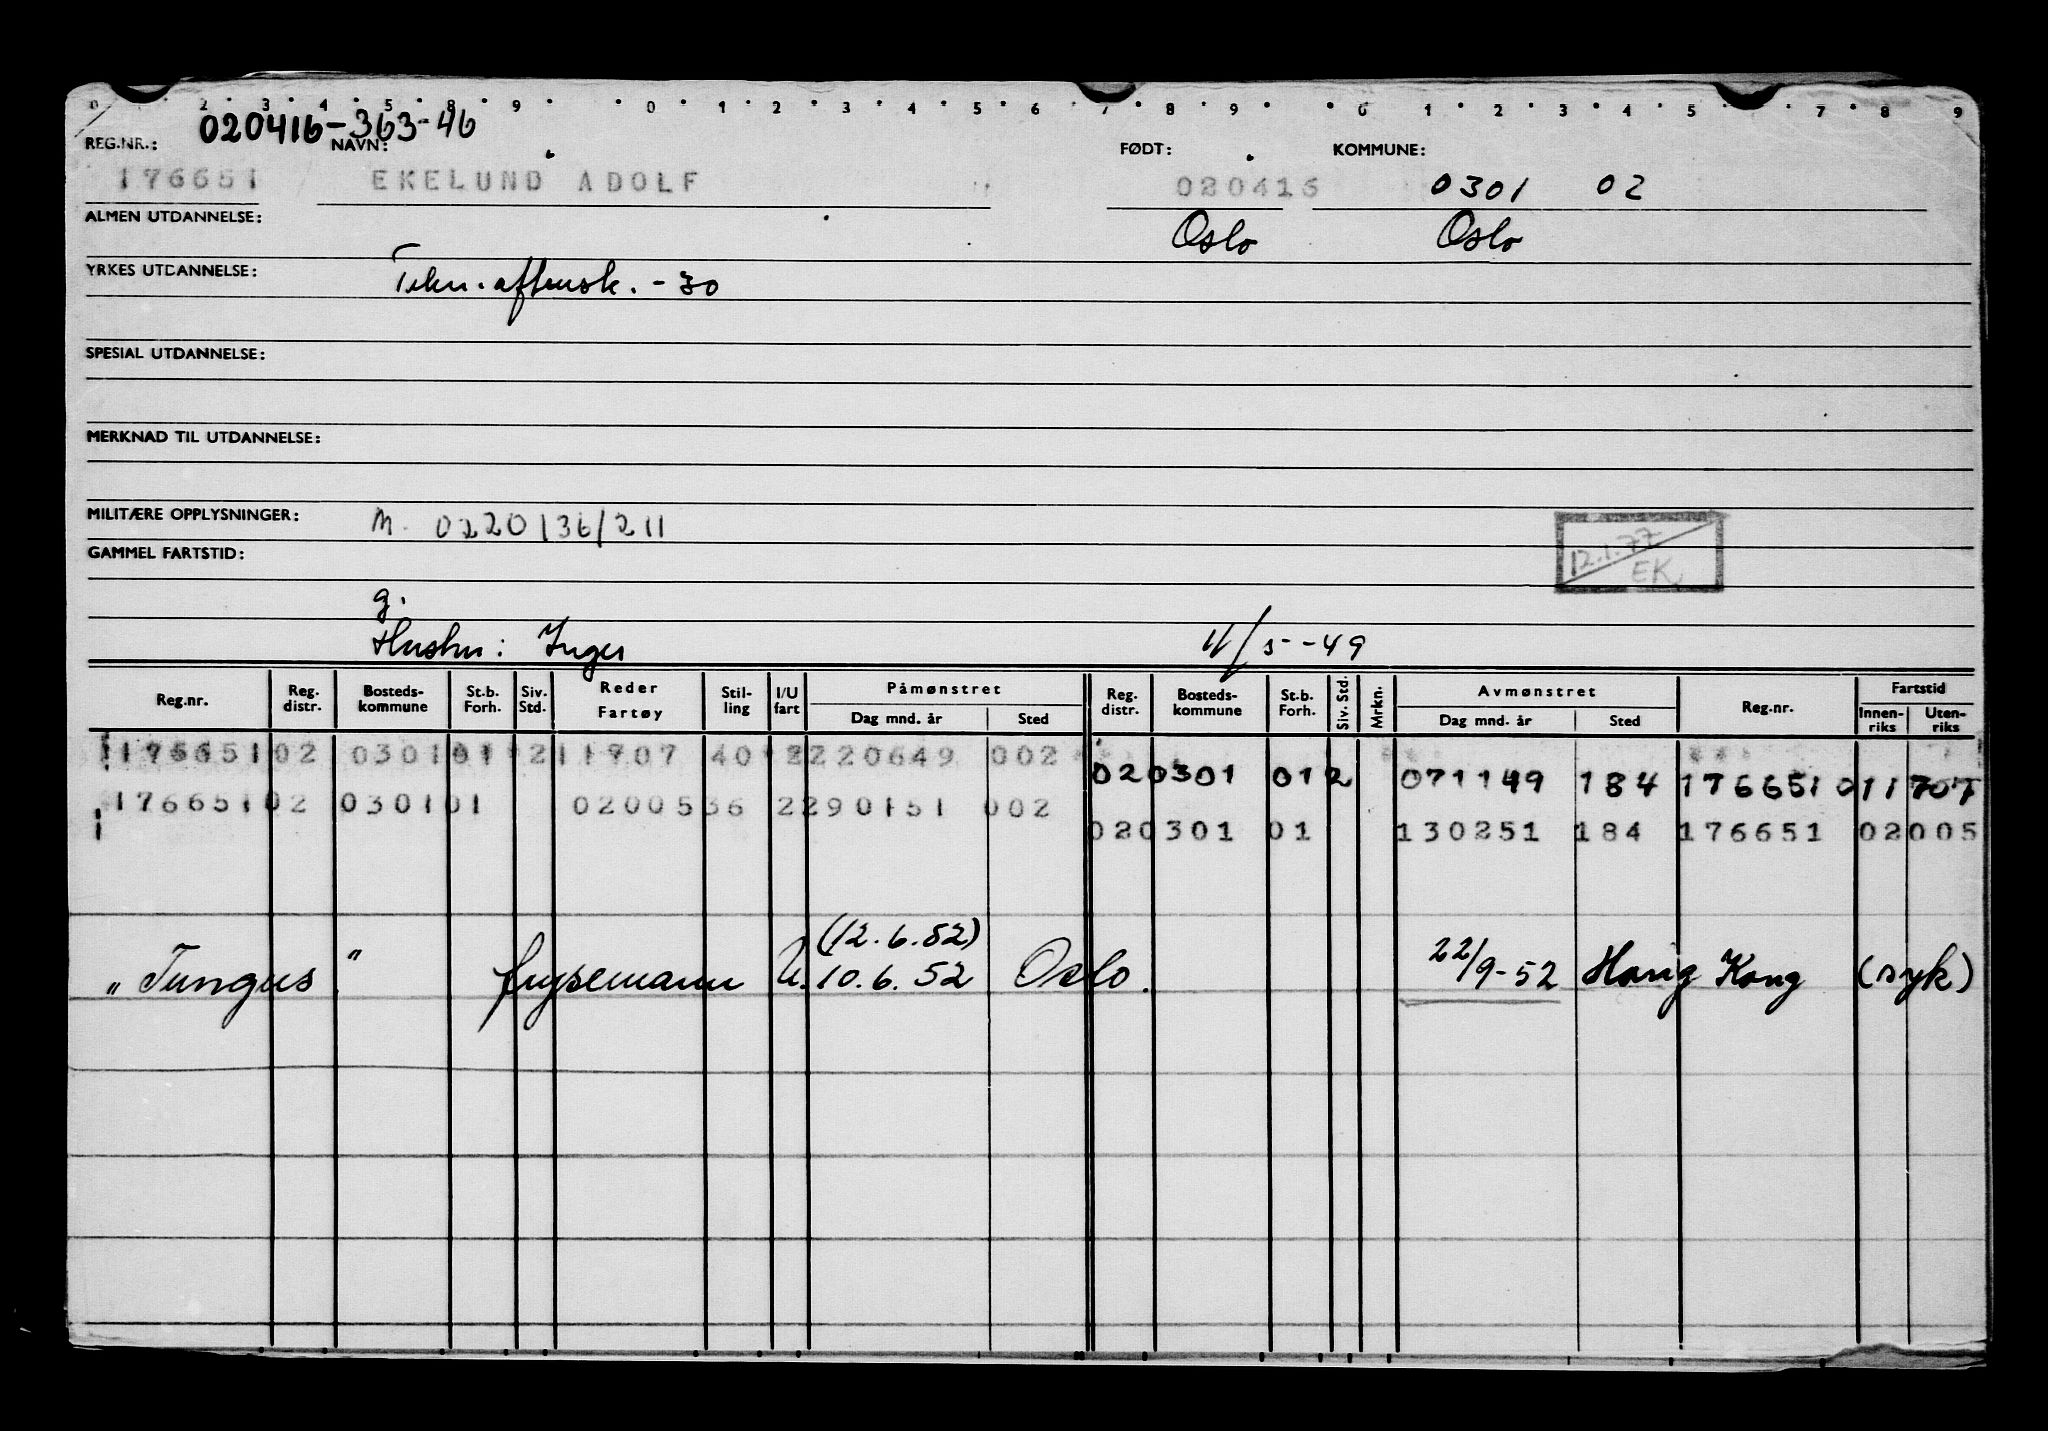 0 2 3 4 5 8 9 0 1 2 3 4 5 6 7 8 9 0 1 2 3 4 5 7 8 9
020416-363-46
REG.NR.: NAVN: FØDT: KOMMUNE:
176651 EKELUND ADOLF 020416 0301 02
ALMEN UTDANNELSE: Oslo Oslo
YRKES UTDANNELSE: Tekn. aftensk. - 30
SPESIAL UTDANNELSE:
MERKNAD TIL UTDANNELSE:
MILITÆRE OPPLYSNINGER: M. 0220/36/211
12.1.77
GAMMEL FARTSTID:
EK
g.
Hustru: Inger 11/5-49
Reg.nr. Reg. distr. Bosteds- kommune St.b. Forh. Siv. Std. Reder Fartøy Stil- ling I/U fart Påmønstret Dag mnd. år Sted Reg. distr. Bosteds- kommune St.b. Forh. Siv. Std. Mrkn. Avmønstret Dag mnd. år Sted Reg.nr. Fartstid Innen- riks Uten- riks
176651 02 0301 01 2 11707 40 2 220649 002
02 0301 01 2 071149 184 176651 011707
176651 02 0301 01 02005 36 2 290151 002
02 0301 01 130251 184 176651 02005
(12.6.52)
"Tungus" U. 10.6.52 Oslo. 22/9-52 Hong Kong (syk)